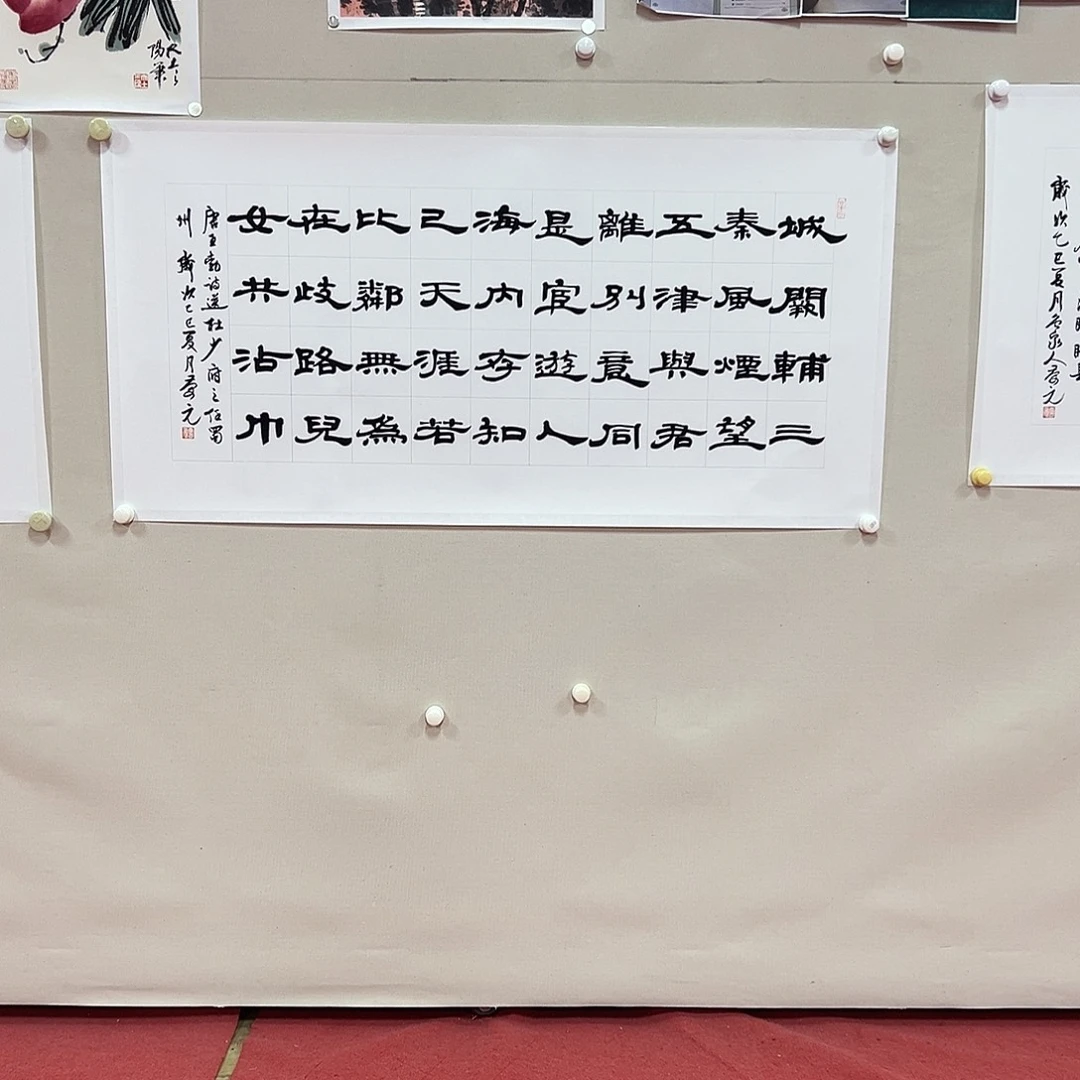 城闕輔三
秦風煙望
五津與君
離別意同
是宦遊人
海内存知
己天涯若
比鄰無為
在歧路兒
女共沾巾
唐王勃詩送杜少府之任蜀
州 歲次乙巳夏月
歲次乙巳夏月